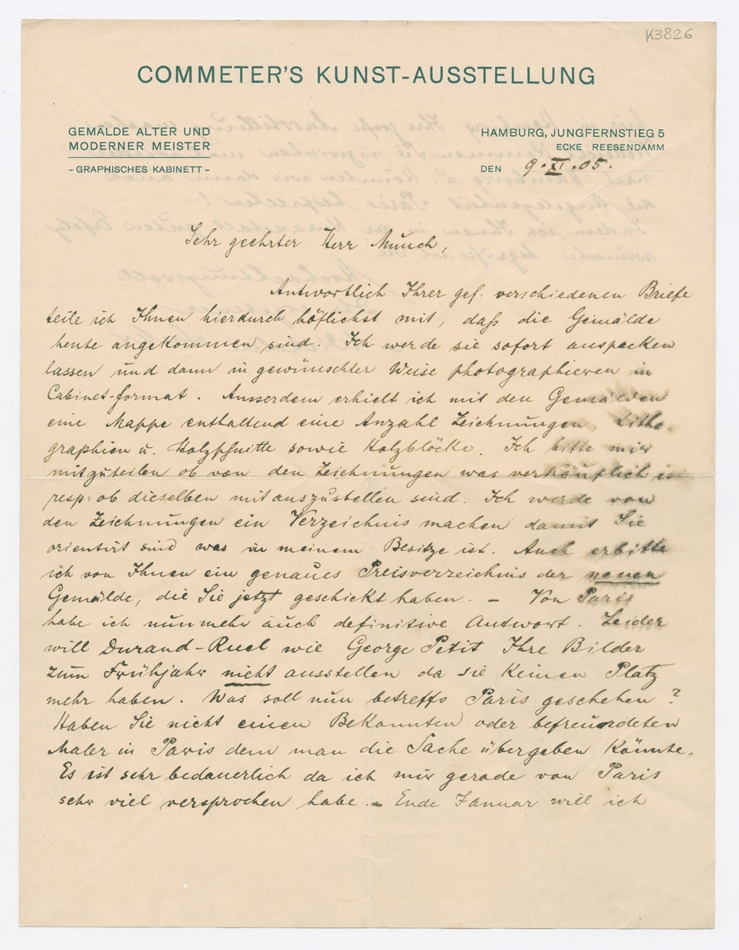 K3826
COMMETER'S KUNST-AUSSTELLUNG
GEMÄLDE ALTER UND
MODERNER MEISTER
- GRAPHISCHES KABINETT -
HAMBURG, JUNGFERNSTIEG 5
ECKE REESENDAMM
DEN 9. XI. 05.
Sehr geehrter Herr Munch,
Antwortlich Ihrer gef. verschiedenen Briefe
teile ich Ihnen hierdurch höflichst mit, daß die Gemälde
heute angekommen sind. Ich werde sie sofort auspacken
lassen und dann in gewünschter Weise photographieren in
Cabinet-format. Ausserdem erhielt ich mit den Gemälden
eine Mappe enthaltend eine Anzahl Zeichnungen, Litho-
graphien u. Holzschnitte sowie Holzblöcke. Ich bitte mir
mitzuteilen ob von den Zeichnungen was verkäuflich ist
resp: ob dieselben mit auszustellen sind. Ich werde von
den Zeichnungen ein Verzeichnis machen damit Sie
orientirt sind was in meinem Besitze ist. Auch erbitte
ich von Ihnen ein genaues Preisverzeichnis der neuen
Gemälde, die Sie jetzt geschickt haben. - Von Paris
habe ich nunmehr auch definitive Antwort. Leider
will Durand-Ruel wie George Petit Ihre Bilder
zum Frühjahr nicht ausstellen da sie keinen Platz
mehr haben. Was soll nun betreffs Paris geschehen?
Haben Sie nicht einen Bekannten oder befreundeten
Maler in Paris dem man die Sache übergeben könnte.
Es ist sehr bedauerlich da ich mir gerade von Paris
sehr viel versprochen habe. - Ende Januar will ich